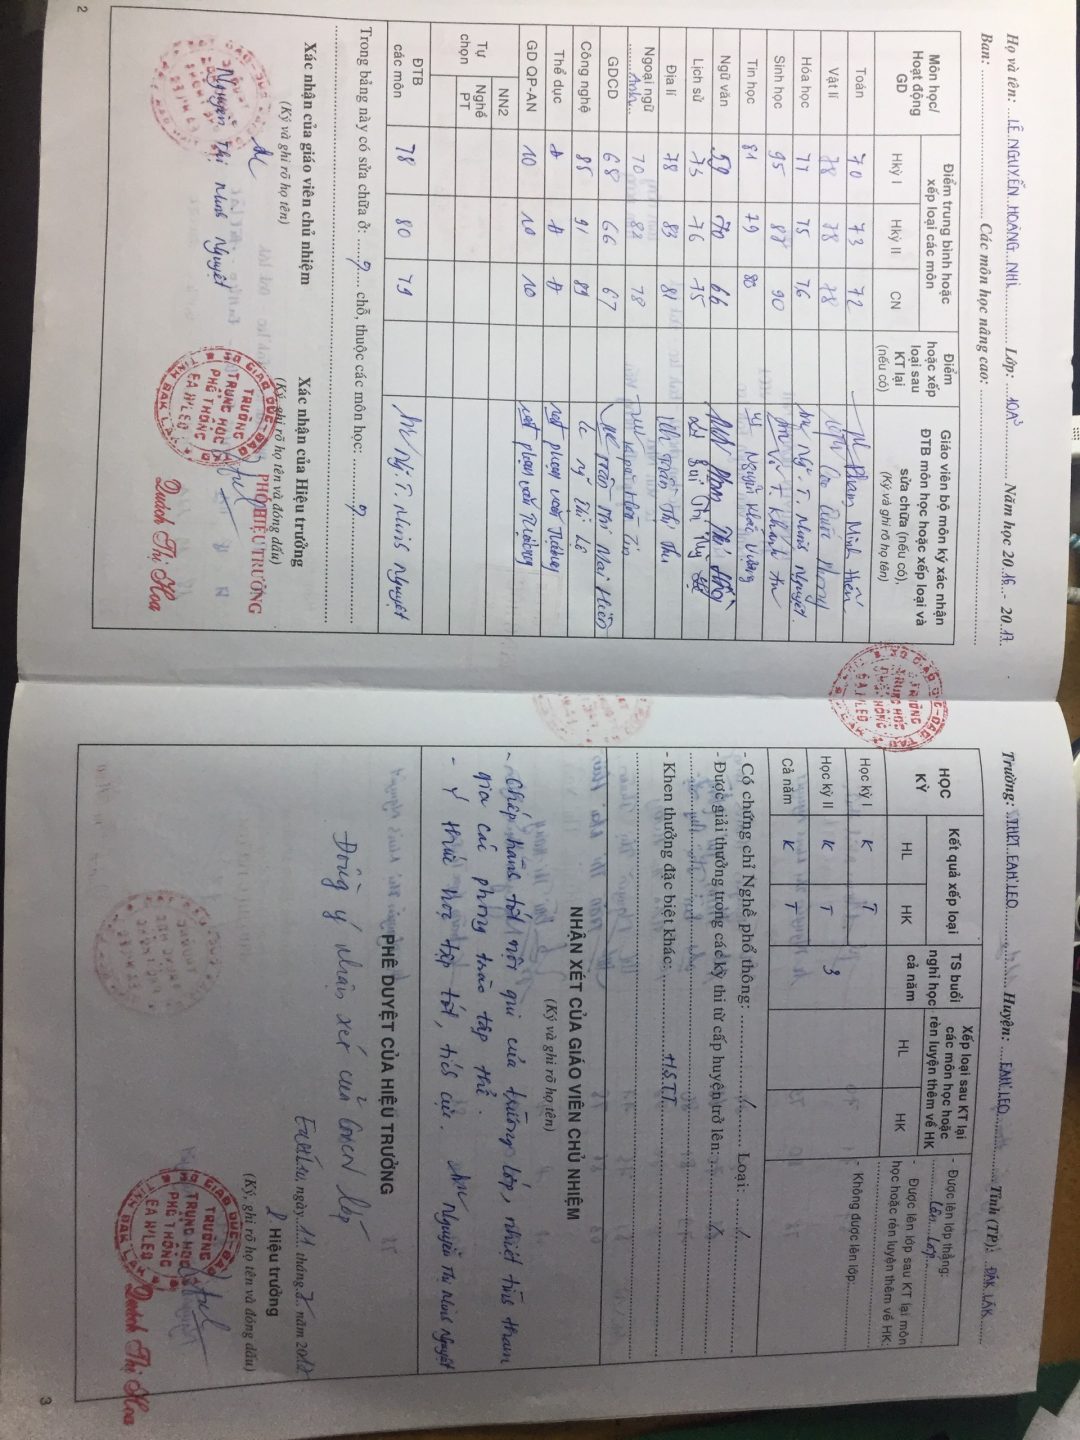 Họ và tên: LÊ NGUYỄN HOÀNG NHI Lớp: 10A3 Năm học 2016 - 2017
Ban: Các môn học nâng cao:
Môn học/ Hoạt động GD
Điểm trung bình hoặc xếp loại các môn
Hkỳ I Hkỳ II CN
Điểm hoặc xếp loại sau KT lại (nếu có)
Giáo viên bộ môn ký xác nhận ĐTB môn học hoặc xếp loại và sửa chữa (nếu có).
(Ký và ghi rõ họ tên)
Toán 70 73 72 Phạm Minh Hiền
Vật lí 78 78 78
Hóa học 77 75 76 Ng. T. Minh Nguyệt
Sinh học 95 87 90 Võ T. Khánh An
Tin học 81 79 80 Nguyễn Khắc Vượng
Ngữ văn 59 70 66
Lịch sử 73 76 75 Bùi Thị Thy
Địa lí 78 83 81 Trần Thị Thu
Ngoại ngữ Anh 70 82 78
GDCD 68 66 67 Trần Thị Mai Hiền
Công nghệ 85 91 89
Thể dục Đ Đ Đ
GD QP-AN 10 10 10
Tự chọn
NN2
Nghề PT
ĐTB các môn 78 80 79 Ng. T. Minh Nguyệt
Trong bảng này có sửa chữa ở: chỗ, thuộc các môn học:
Xác nhận của giáo viên chủ nhiệm
(Ký và ghi rõ họ tên)
Nguyễn Thị Minh Nguyệt
Xác nhận của Hiệu trưởng
(Ký, ghi rõ họ tên và đóng dấu)
PHÓ HIỆU TRƯỞNG
SỞ GIÁO DỤC-ĐÀO TẠO
TRƯỜNG
TRUNG HỌC
PHỔ THÔNG
EA H'LEO
TỈNH ĐẮK LẮK
Quách Thị Hoa
2
Trường: THPT EAH'LEO Huyện: EAH'LEO Tỉnh (TP): ĐĂK LĂK
HỌC KỲ
Kết quả xếp loại
HL HK
TS buổi nghỉ học cả năm
Xếp loại sau KT lại các môn học hoặc rèn luyện thêm về HK
HL HK
- Được lên lớp thẳng:
Lên lớp
- Được lên lớp sau KT lại môn học hoặc rèn luyện thêm về HK:
- Không được lên lớp:
Học kỳ I K T
Học kỳ II K T 3
Cả năm K T
- Có chứng chỉ Nghề phổ thông: / Loại: /
- Được giải thưởng trong các kỳ thi từ cấp huyện trở lên:
- Khen thưởng đặc biệt khác: H.S.T.T
NHẬN XÉT CỦA GIÁO VIÊN CHỦ NHIỆM
(Ký và ghi rõ họ tên)
- Chấp hành tốt nội qui của trường lớp, nhiệt tình tham
gia các phong trào tập thể.
- Ý thức học tập tốt, tích cực.
Nguyễn Thị Minh Nguyệt
PHÊ DUYỆT CỦA HIỆU TRƯỞNG
Đồng ý nhận xét của GVCN lớp
ngày 11 tháng năm 2017
Hiệu trưởng
(Ký, ghi rõ họ tên và đóng dấu)
SỞ GIÁO DỤC-ĐÀO TẠO
TRƯỜNG
TRUNG HỌC
PHỔ THÔNG
EA H'LEO
TỈNH ĐẮK LẮK
Quách Thị Hoa
3